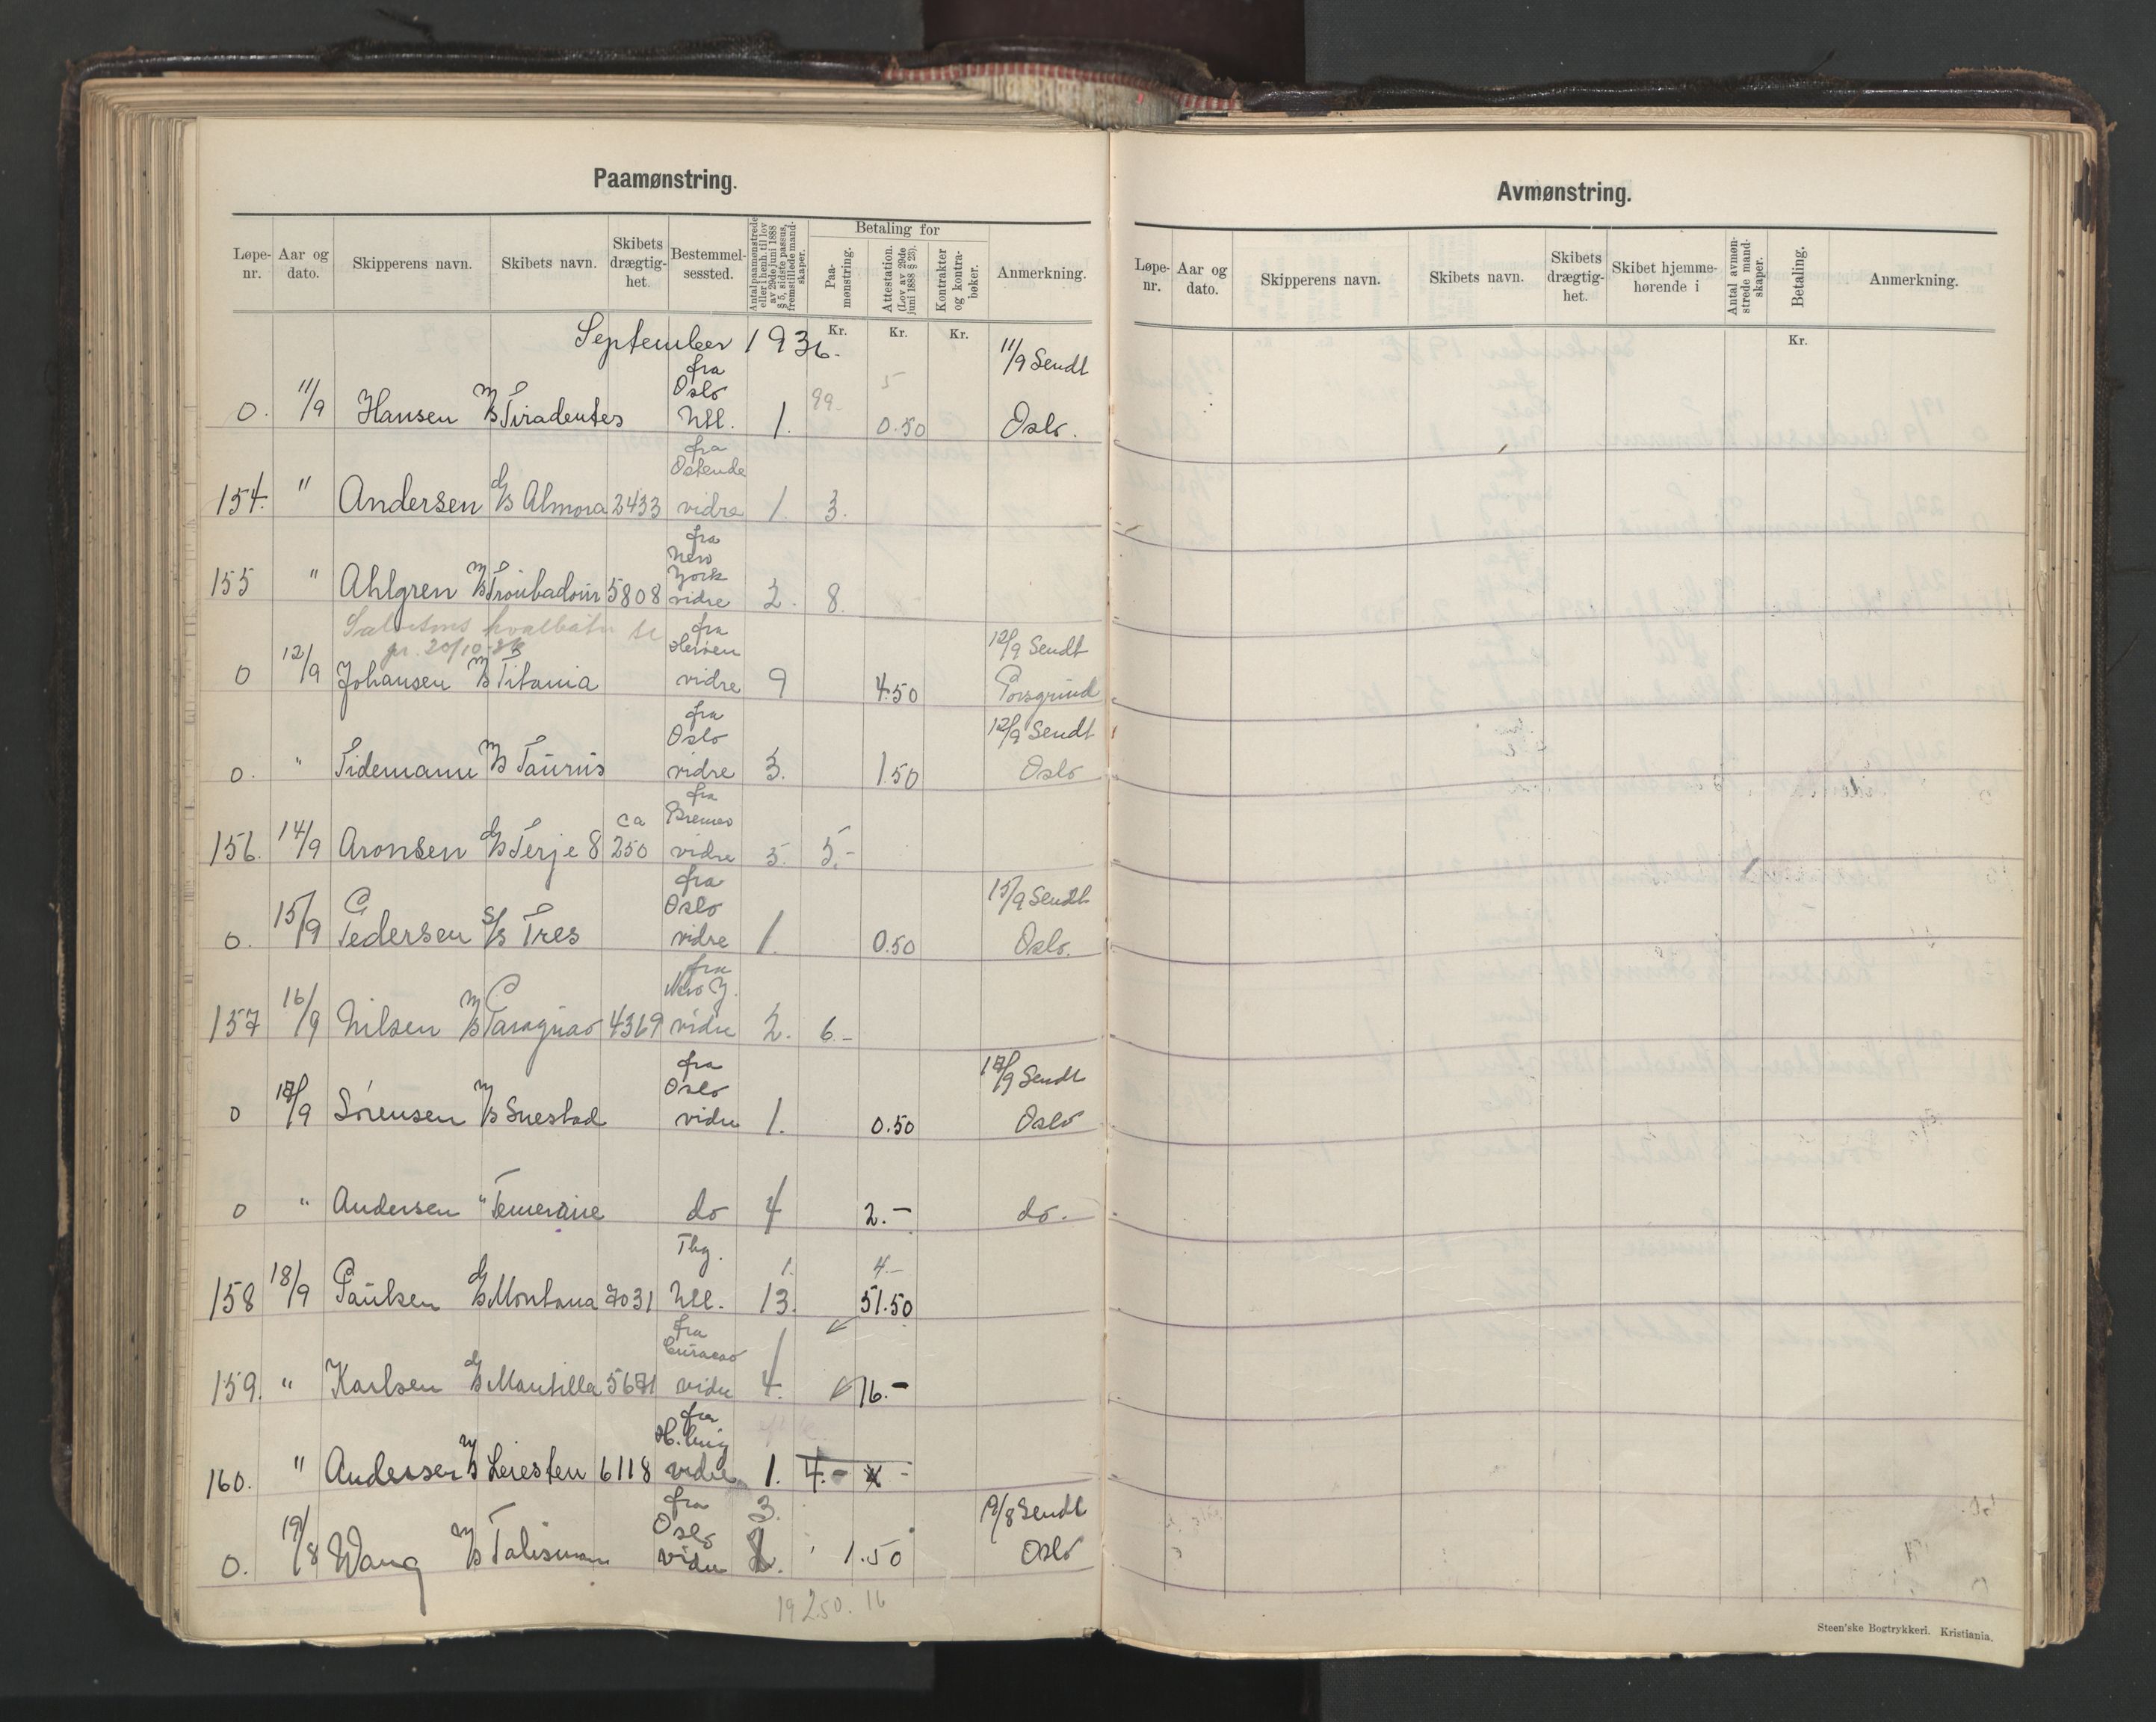 Paamønstring.
Løpe-nr. Aar og dato. Skipperens navn. Skibets navn. Skibets drægtig-het. Bestemmel-sessted. Antal paamønstrede eller i henh. til lov av 29de juni 1888 § 5, sidste passus, fremstillede mand-skaper. Betaling for Paa-mønstring. Attestation. (Lov av 29de juni 1888 § 23). Kontrakter og kontra-bøker. Anmerkning.
Kr. Kr. Kr.
September 1936.
fra 11/9 Sendt
Oslo 99. 5
0. 11/9 Hansen M/S Tiradentes 1. 0.50 Oslo.
fra
Ostende
154. " Andersen d/s Almora 2433 vidre 1. 3.
fra
New
York
155 " Ahlgren M/S Troubadour 5808 vidre 2. 8.
fra
pr. 20/10-36 12/9 Sendt
0 12/9 Johansen M/S Titania vidre 9 4.50 Porsgrund
fra 12/9 Sendt
Oslo
0. " Tidemann M/S Taurus vidre 3. 1.50 Oslo
fra
ca
156. 14/9 Aronsen d/s Terje 8 250 vidre 5. 5.-
fra 15/9 Sendt
Oslo
0. 15/9 Pedersen S/S Tres vidre 1. 0.50 Oslo.
fra
New Y.
157 16/9 Nilsen M/S Paraguao 4369 vidre 2. 6.-
fra 17/9 Sendt
Oslo
0 17/9 Sørensen M/S Snestad vidre 1. 0.50 Oslo
0 " Andersen " Temeraire do 4 2.- do.
Tbg. 1. 4.-
158 18/9 Paulsen d/s Montana 7031 13. 51.50
fra
Curacao
159. " Karlsen d/s Mantilla 5671 vidre 4. 16.-
fra
160. " Andersen M/S Leiesten 6118 vidre 1. 4.-
fra 3. 19/8 Sendt
Oslo
0. 19/8 Wang M/S Talisman vidre 1.50 Oslo
19 250. 16
Avmønstring.
Løpe-nr. Aar og dato. Skipperens navn. Skibets navn. Skibets drægtig-het. Skibet hjemme-hørende i Antal avmøn-strede mand-skaper. Betaling. Anmerkning.
Kr.
Steen'ske Bogtrykkeri. Kristiania.